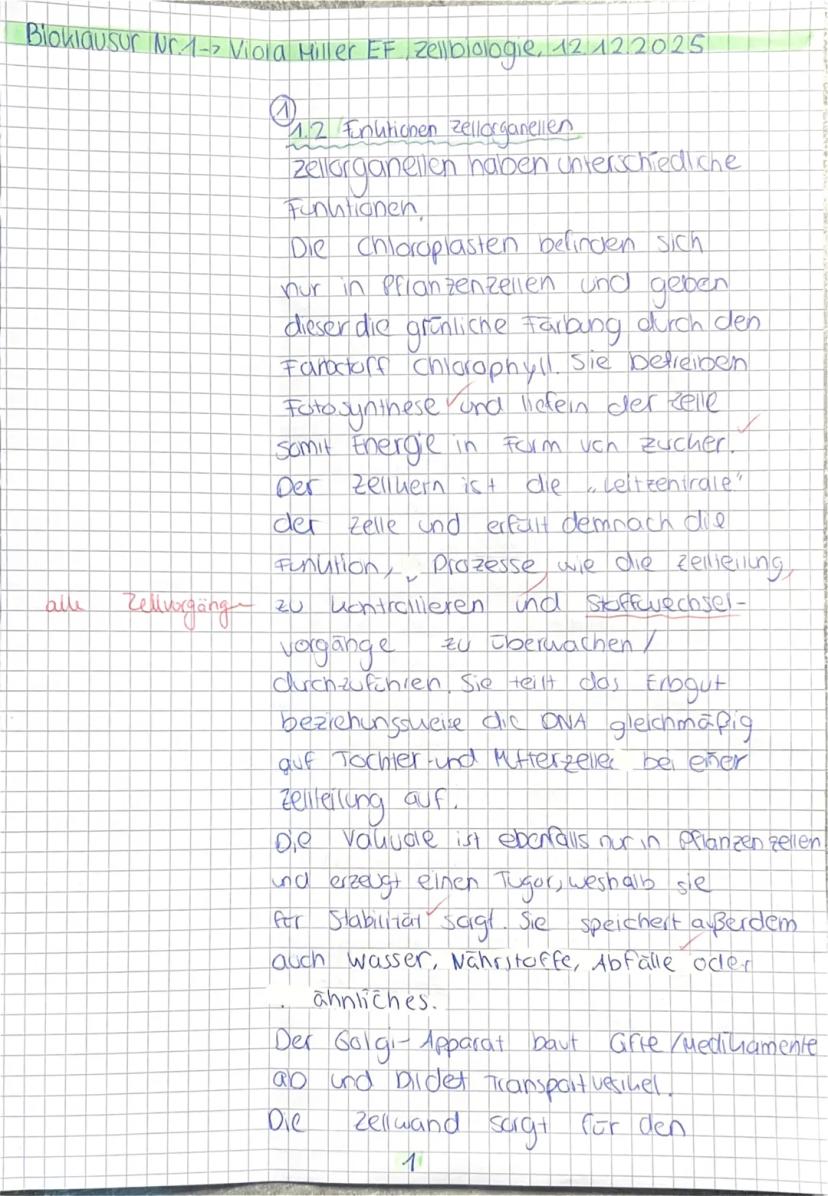 Bioklausur Nr.1-> Viola Hiller EF, Zellbiologie, 12.12.2025
1
1.2 Funktionen Zellorganellen
Zellorganellen haben unterschiedliche
Funktionen.
Die Chloroplasten befinden sich
nur in Pflanzenzellen und geben
dieser die grünliche Färbung durch den
Farbstoff Chlorophyll. Sie betreiben
Fotosynthese und liefern der Zelle
somit Energie in Form von Zucker.
Der Zellkern ist die „Leitzentrale"
der Zelle und erfüllt demnach die
Funktion, Prozesse, wie die Zellteilung,
alle Zellvorgänge
zu kontrollieren und Stoffwechsel-
vorgänge zu überwachen /
durchzuführen. Sie teilt das Erbgut
beziehungsweise die DNA gleichmäßig
auf Tochter- und Mutterzelle bei einer
Zellteilung auf.
Die Vakuole ist ebenfalls nur in Pflanzenzellen
und erzeugt einen Tugor, weshalb sie
für Stabilität sorgt. Sie speichert außerdem
auch Wasser, Nährstoffe, Abfälle oder
ähnliches.
Der Golgi-Apparat baut Gifte/Medikamente
ab und bildet Transportvesikel.
Die Zellwand sorgt für den
1